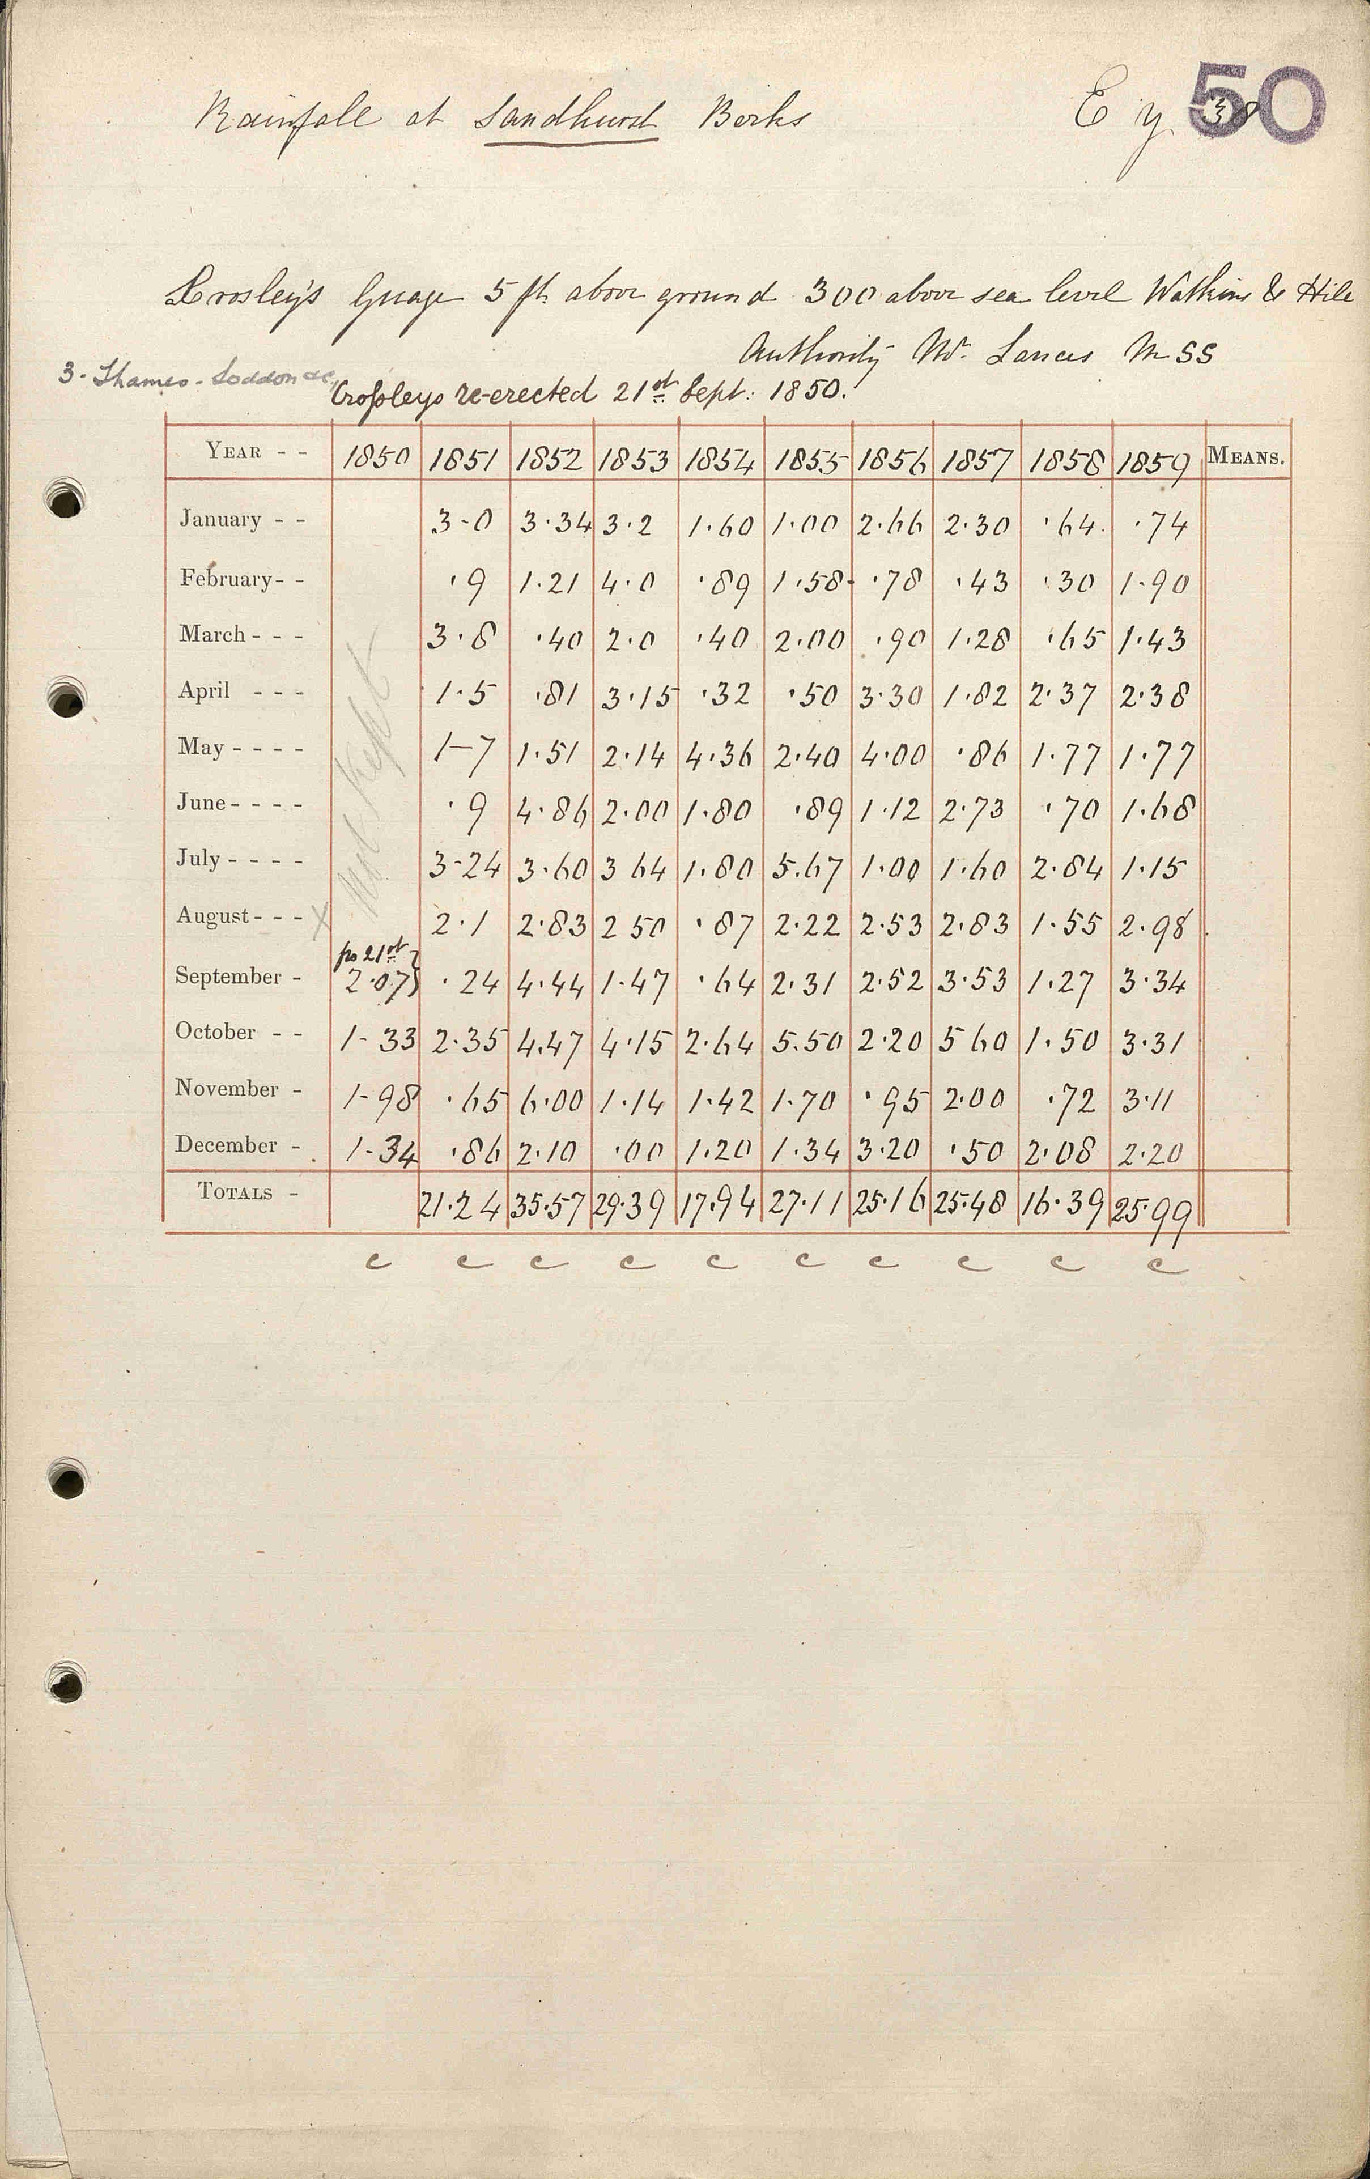 Rainfall at Sandhurst Berks E y 38 50
Crosley's Guage 5 ft above ground 300 above sea level Watkins & Hill
Authority Mr. Lances MSS
3. Thames - Loddon &c
Crossleys re-erected 21st Sept: 1850.
YEAR - - 1850 1851 1852 1853 1854 1855 1856 1857 1858 1859 MEANS.
January - - 3-0 3.34 3.2 1.60 1.00 2.66 2.30 .64 .74
February - - .9 1.21 4.0 .89 1.58 .78 .43 .30 1.90
March - - - 3.8 .40 2.0 .40 2.00 .90 1.28 .65 1.43
April - - - 1.5 .81 3.15 .32 .50 3.30 1.82 2.37 2.38
May - - - - 1-7 1.51 2.14 4.36 2.40 4.00 .86 1.77 1.77
June - - - - .9 4.86 2.00 1.80 .89 1.12 2.73 .70 1.68
July - - - - 3-24 3.60 3 64 1.80 5.67 1.00 1.60 2.84 1.15
Not kept
August - - - x 2.1 2.83 2 50 .87 2.22 2.53 2.83 1.55 2.98
21st
September - 2.07 .24 4.44 1.47 .64 2.31 2.52 3.53 1.27 3.34
October - - 1-33 2.35 4.47 4.15 2.64 5.50 2.20 5 60 1.50 3.31
November - 1-98 .65 6.00 1.14 1.42 1.70 .95 2.00 .72 3.11
December - 1-34 .86 2.10 .00 1.20 1.34 3.20 .50 2.08 2.20
TOTALS - 21.24 35.57 29.39 17.94 27.11 25.16 25.48 16.39 25.99
c c c c c c c c c c